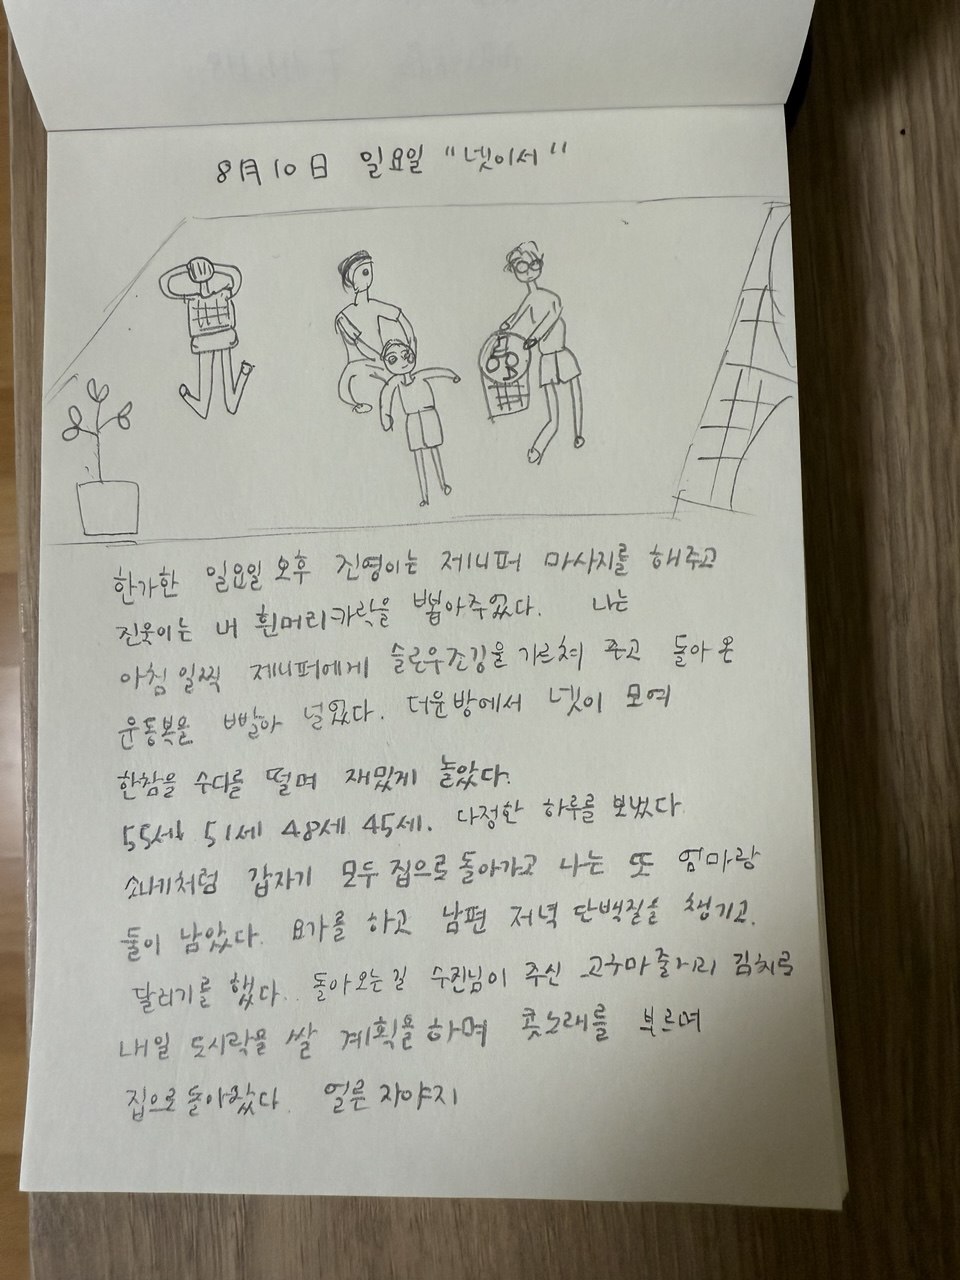 8月10日 일요일 "넷이서"
한가한 일요일 오후 진영이는 제니퍼 마사지를 해주고
진욱이는 내 흰머리카락을 뽑아주었다. 나는
아침 일찍 제니퍼에게 슬로우조깅을 가르쳐 주고 돌아온
운동복을 빨아 널었다. 더운방에서 넷이 모여
한참을 수다를 떨며 재밌게 놀았다.
55세 51세 48세 45세. 다정한 하루를 보냈다.
소나기처럼 갑자기 모두 집으로 돌아가고 나는 또 엄마랑
둘이 남았다. 요가를 하고 남편 저녁 단백질을 챙기고.
달리기를 했다.. 돌아오는길 수진님이 주신 고구마줄거리 김치로
내일 도시락을 쌀 계획을 하며 콧노래를 부르며
집으로 돌아왔다. 얼른 자야지